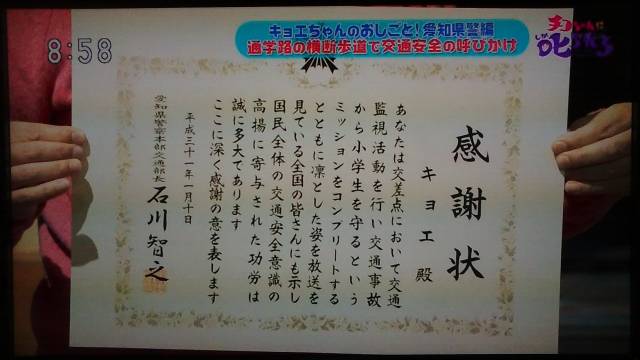 8:58
キョエちゃんのおしごと！愛知県警編
通学路の横断歩道で交通安全の呼びかけ
チコちゃんに
叱られる
感謝状
キョエ 殿
あなたは交差点において交通
監視活動を行い交通事故
から小学生を守るという
ミッションをコンプリートする
とともに凜とした姿を放送を
見ている全国の皆さんにも示し
国民全体の交通安全意識の
高揚に寄与された功労は
誠に多大であります
ここに深く感謝の意を表します
平成三十一年一月十日
愛知県警察本部交通部長
石川智之